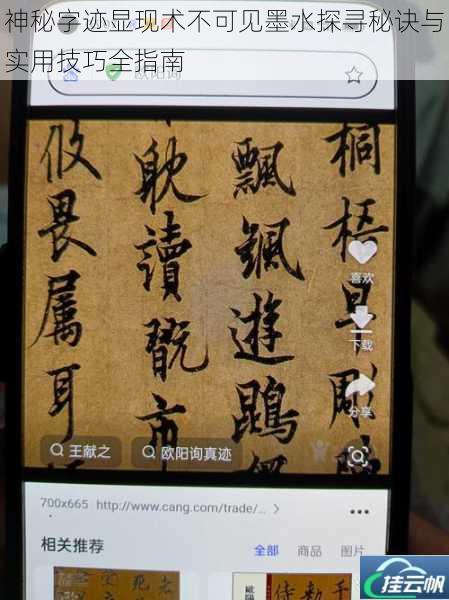 神秘字迹显现术不可见墨水探寻秘诀与
实用技巧全指南
欧阳询
桐梧早彫
飄颻遊鵾
躭讀翫市
攸畏属耳
喜欢
下载
分享
王献之
欧阳询真迹
700x665 http://www.cang.com/trade/...
相关推荐
全部 商品 图片
挂云帆